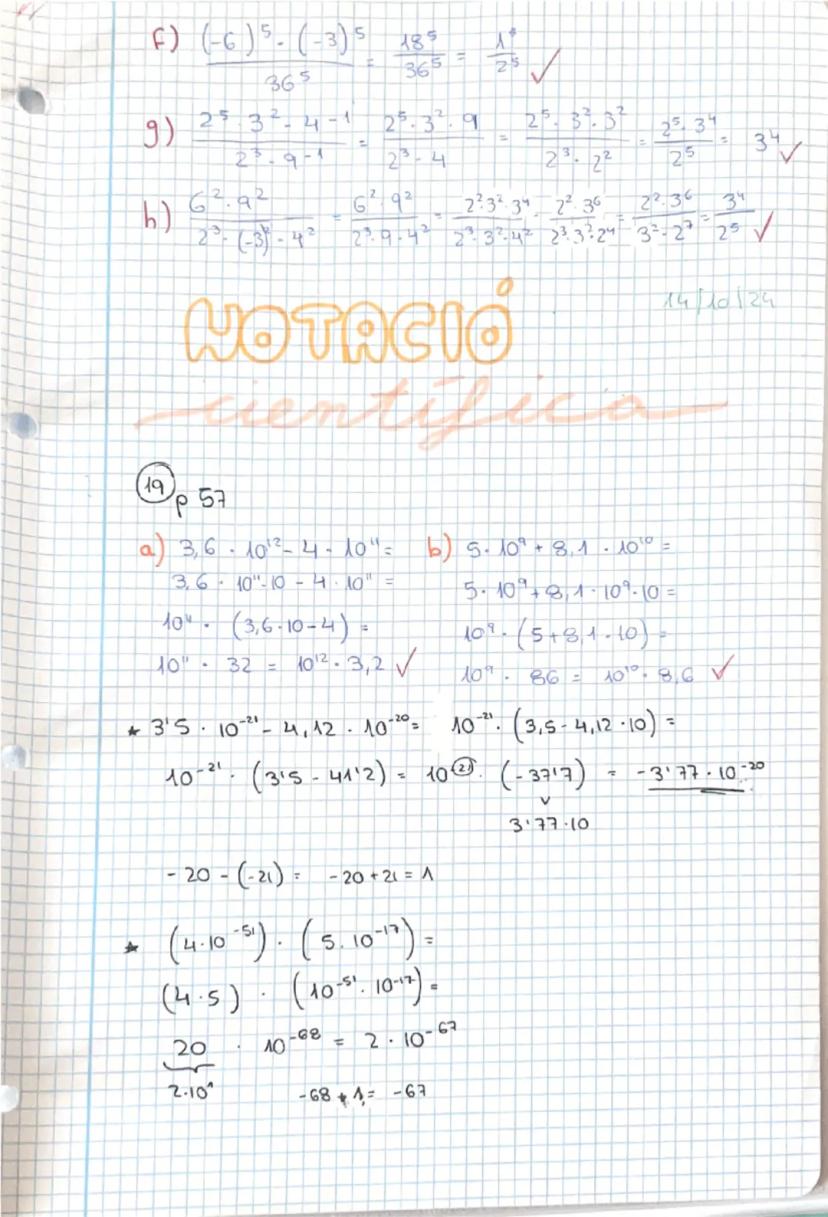 f) (-6)⁵ · (-3)⁵ / 36⁵ = 18⁵ / 36⁵ = 1⁵ / 2⁵ ✓
g) 2⁵ · 3² · 4⁻¹ / 2³ · 9⁻¹ = 2⁵ · 3² · 9 / 2³ · 4 = 2⁵ · 3² · 3² / 2³ · 2² = 2⁵ · 3⁴ / 2⁵ = 3⁴ ✓
h) 6² · 9² / 2³ · (-3)² · 4² = 6² · 9² / 2³ · 9 · 4² = 2² 3² · 3⁴ / 2³ · 3² · 4² = 2² · 3⁶ / 2³ · 3² · 2⁴ = 2² · 3⁶ / 3² · 2⁷ = 3⁴ / 2⁵ ✓
14/10/24
NOTACIÓ
científica
19 p 57
a) 3,6 · 10¹² - 4 · 10¹¹ =
3,6 · 10¹¹ · 10 - 4 · 10¹¹ =
10¹¹ · (3,6 · 10 - 4) =
10¹¹ · 32 = 10¹² · 3,2 ✓
b) 5 · 10⁹ + 8,1 · 10¹⁰ =
5 · 10⁹ + 8,1 · 10⁹ · 10 =
10⁹ · (5 + 8,1 · 10) =
10⁹ · 86 = 10¹⁰ · 8,6 ✓
* 3'5 · 10⁻²¹ - 4,12 · 10⁻²⁰ = 10⁻²¹ · (3,5 - 4,12 · 10) =
10⁻²¹ · (3'5 - 41'2) = 10⁻²¹ · (-37'7) = -3'77 · 10⁻²⁰
3'77 · 10
-20 - (-21) = -20 + 21 = 1
* (4 · 10⁻⁵¹) · (5 · 10⁻¹⁷) =
(4 · 5) · (10⁻⁵¹ · 10⁻¹⁷) =
20 · 10⁻⁶⁸ = 2 · 10⁻⁶⁷
2 · 10¹ -68 + 1 = -67